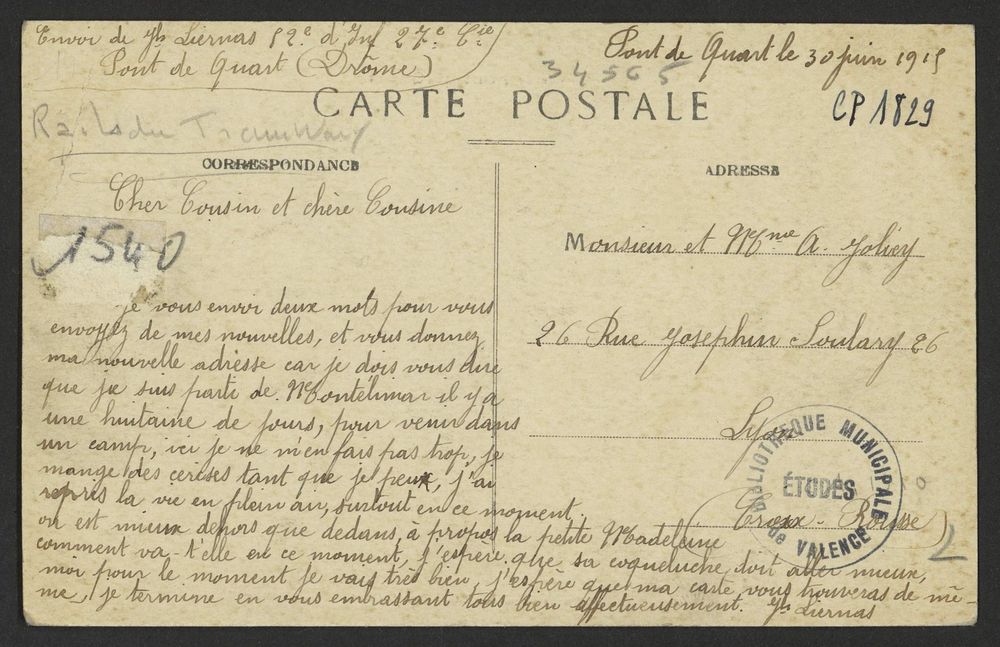 Envoi de Jh Liernas 52e d'Inf 27e Cie
Pont de Quart (Drôme)
Pont de Quart le 30 juin 1915
34565
CARTE POSTALE
CP 1829
Rails du Tramway
CORRESPONDANCE
ADRESSE
Cher Cousin et chère Cousine
1540
je vous envoi deux mots pour vous
envoyez de mes nouvelles, et vous donnez
ma nouvelle adrèsse car je dois vous dire
que je suis parti de Montélimar il y a
une huitaine de jours, pour venir dans
un camp, ici je ne m'en fais pas trop, je
mange des cerises tant que je peux, j'ai
repris la vie en plein air, surtout en ce moment
on est mieux dehors que dedans, à propos la petite Madeleine
comment va-t'elle en ce moment, j'espère que sa coqueluche doit aller mieux,
moi pour le moment je vais très bien, j'espère que ma carte vous trouveras de mê-
me, je termine en vous embrassant tous bien affectueusement. Jh Liernas
Monsieur et Mme A. Joliey
26 Rue Josephin Soulary 26
Lyon
(Croix-Rousse)
BIBLIOTHEQUE MUNICIPALE
ÉTUDES
de VALENCE
2